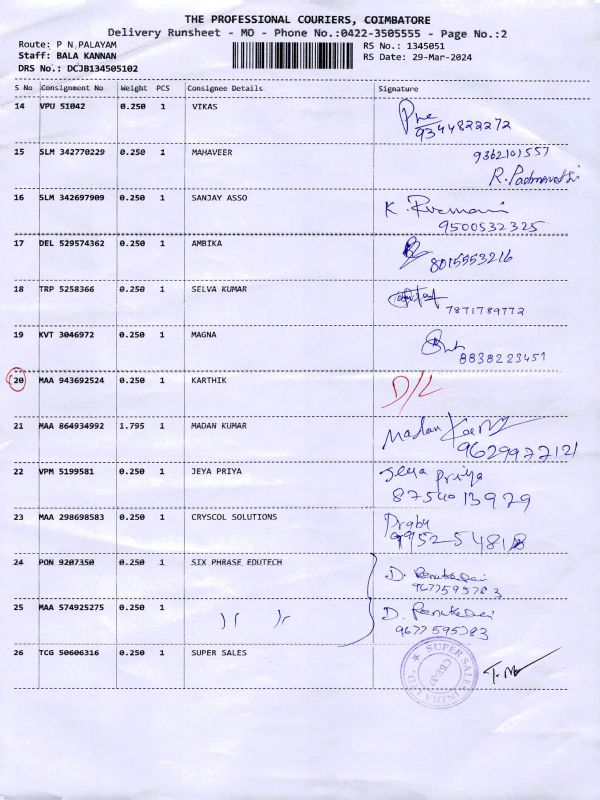 THE PROFESSIONAL COURIERS, COIMBATORE
Delivery Runsheet - MO - Phone No.:0422-3505555 - Page No.:2
Route: P N PALAYAM
Staff: BALA KANNAN
DRS No.: DCJB134505102
RS No.: 1345051
RS Date: 29-Mar-2024
S No Consignment No Weight PCS Consignee Details Signature
14 VPU 51042 0.250 1 VIKAS
9344822272
15 SLM 342770229 0.250 1 MAHAVEER 9362101557
R. Padmavathi
16 SLM 342697909 0.250 1 SANJAY ASSO K.
9500532325
17 DEL 529574362 0.250 1 AMBIKA
8015553216
18 TRP 5258366 0.250 1 SELVA KUMAR
7871789772
19 KVT 3046972 0.250 1 MAGNA
8838223451
20 MAA 943692524 0.250 1 KARTHIK D/L
21 MAA 864934992 1.795 1 MADAN KUMAR Madan
9629977121
22 VPM 5199581 0.250 1 JEYA PRIYA Jeya Priya
8754013979
23 MAA 298698583 0.250 1 CRYSCOL SOLUTIONS Prabu
24 PON 9207350 0.250 1 SIX PHRASE EDUTECH D.
9677595783
25 MAA 574925275 0.250 1 D.
9677595783
26 TCG 50606316 0.250 1 SUPER SALES SUPER SALES
CBE-37